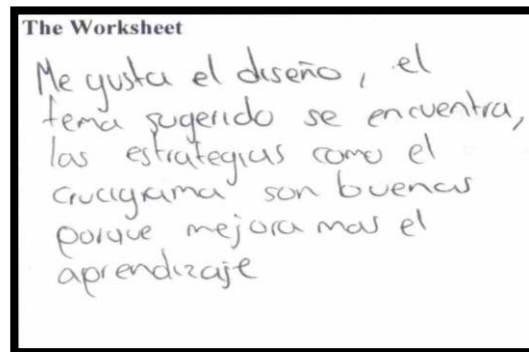 The Worksheet
Me gusta el diseño, el
tema sugerido se encuentra,
las estrategias como el
crucigrama son buenas
porque mejora mas el
aprendizaje